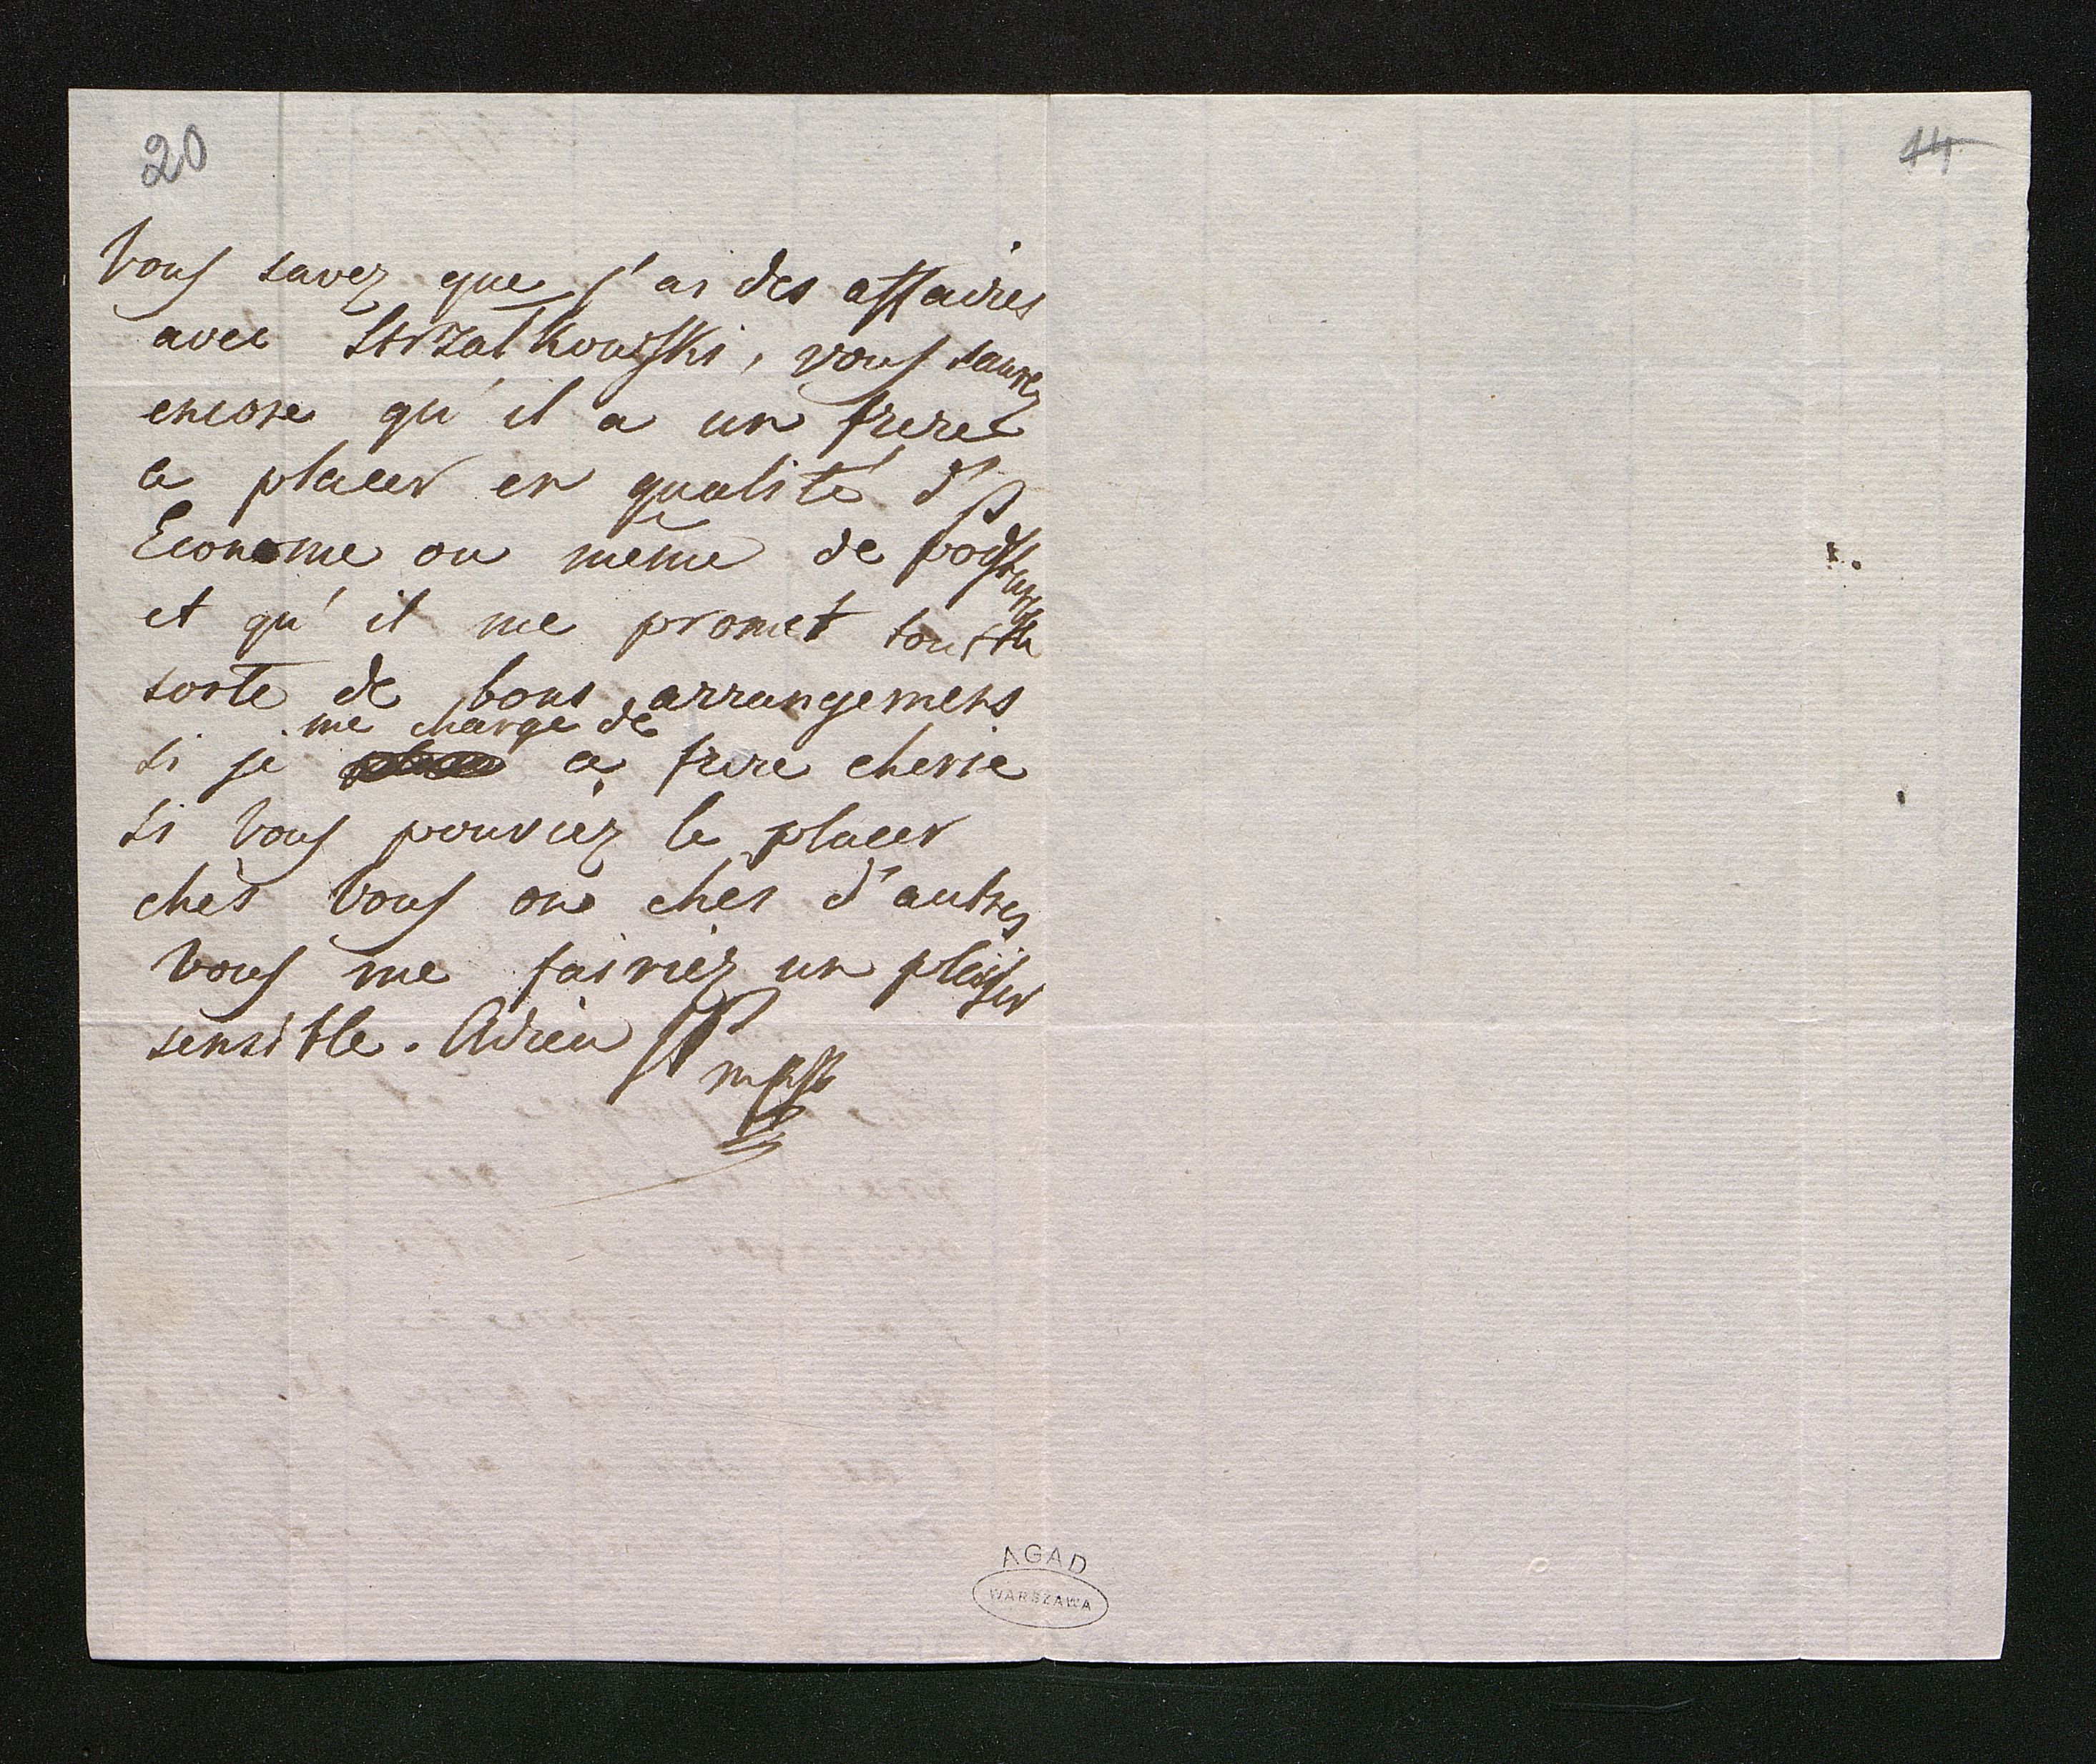 20
14
Vous savez que j'ai des affaires
avec Strzalkowski, vous saurez
encore qu'il a un frere
a placer en qualité d'
Econome ou même de Podstarosta
et qu'il me promet toutte
sorte de bons arrangemens
me charge de
si je ce frere cherie
si Vous pouviez le placer
chès Vous ou ches d'autres
Vous me fairiez un plaisir
sensible. Adieu
AGAD
WARSZAWA